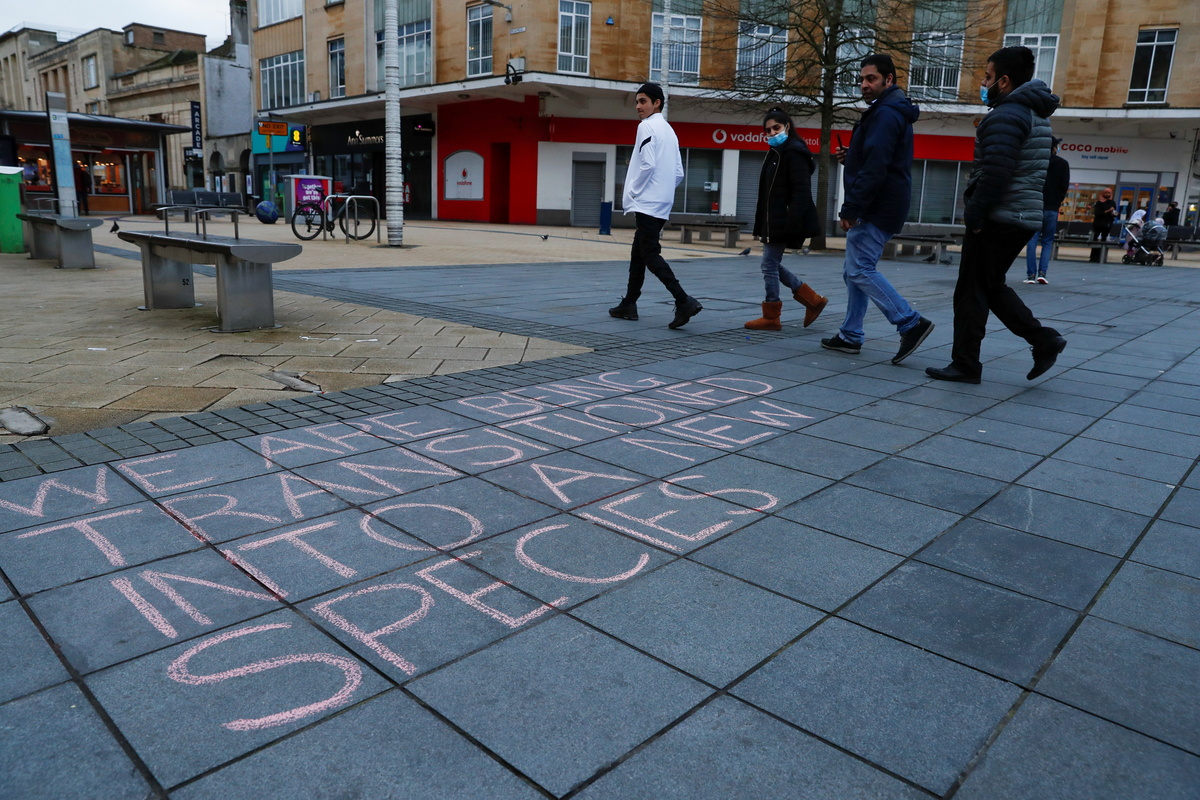 WE ARE BEING
TRANSITIONED
INTO A NEW
SPECIES
Ann Summers
vodafone
COCO mobile
ARCADE
EE